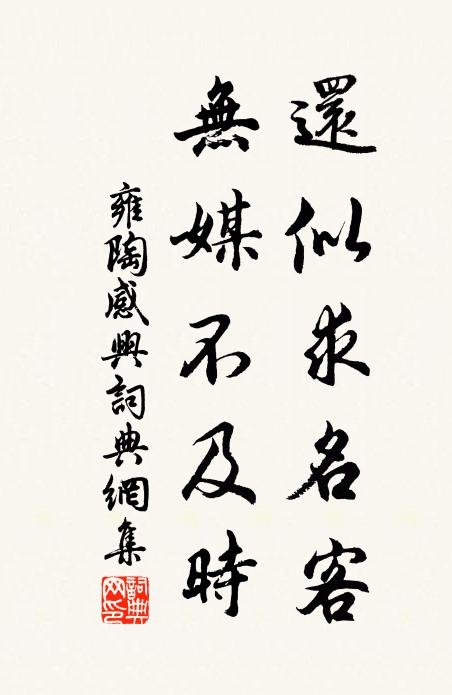 還似求名客
無媒不及時
雍陶感興詞典網集
詞典網印